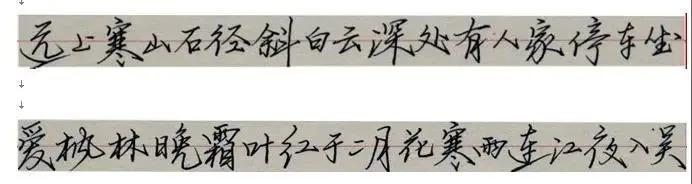 远上寒山石径斜白云深处有人家停车坐
爱枫林晚霜叶红于二月花寒雨连江夜入吴